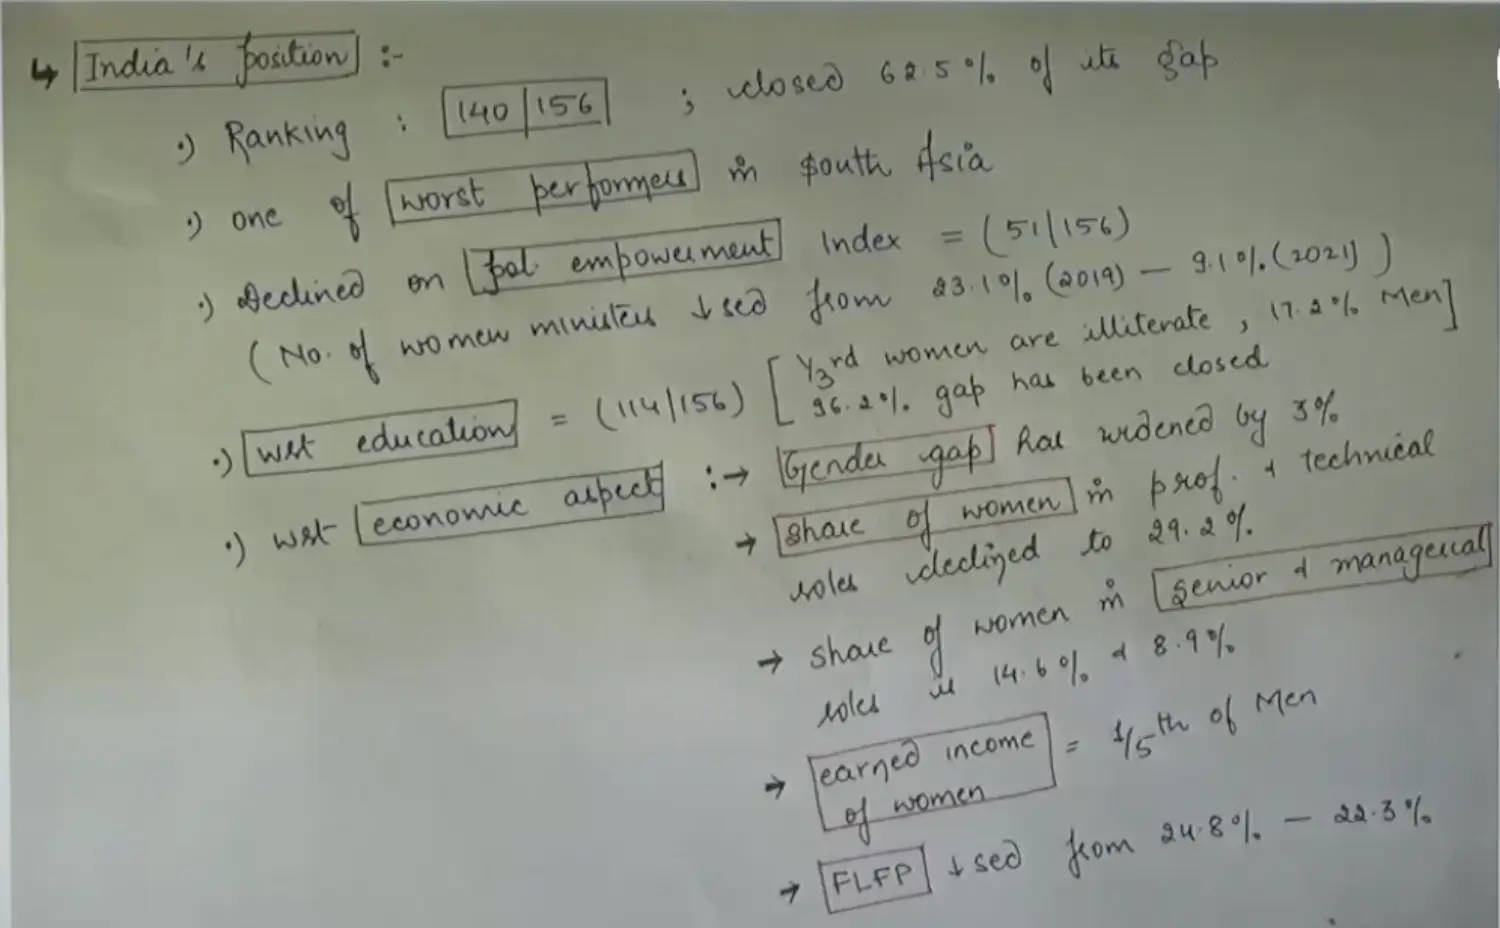 ↳ India's position :-
·) Ranking : 140/156 ; closed 62.5% of its gap
·) one of worst performers in South Asia
·) Declined on pol. empowerment Index = (51/156)
(No. of women ministers ↓sed from 23.1% (2019) — 9.1% (2021))
·) wrt education = (114/156) [1/3rd women are illiterate, 17.2% Men]
96.2% gap has been closed
·) wrt economic aspect :→ Gender gap has widened by 3%
→ share of women in prof. & technical
roles declined to 29.2%.
→ share of women in senior & managerial
roles is 14.6% & 8.9%
→ earned income of women = 1/5th of Men
→ FLFP ↓sed from 24.8% — 22.3%